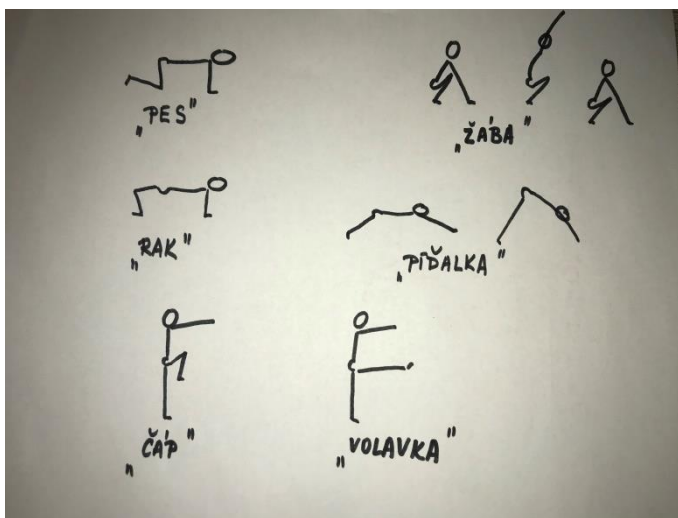 „PES"
„ŽÁBA"
„RAK"
„PÍĎALKA"
„ČÁP"
„VOLAVKA"